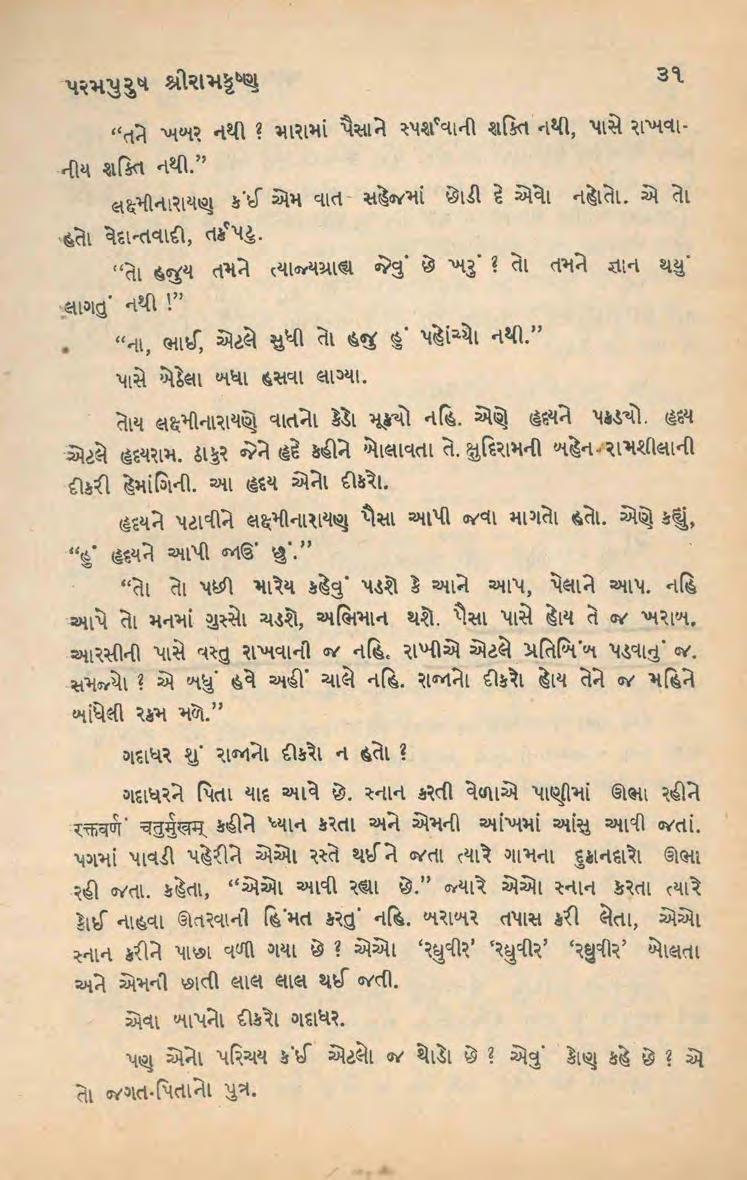 પરમપુરુષ શ્રીરામકૃષ્ણ ૩૧
“તને ખબર નથી ? મારામાં પૈસાને સ્પર્શવાની શક્તિ નથી, પાસે રાખવા-
નીય શક્તિ નથી.”
લક્ષ્મીનારાયણ કંઈ એમ વાત સહેજમાં છોડી દે એવો નહોતો. એ તો
હતો વેદાન્તવાદી, તર્કપટુ.
“તો હજુય તમને ત્યાજ્યગ્રાહ્ય જેવું છે ખરું ? તો તમને જ્ઞાન થયું
લાગતું નથી !”
“ના, ભાઈ, એટલે સુધી તો હજુ હું પહોંચ્યો નથી.”
પાસે બેઠેલા બધા હસવા લાગ્યા.
તોય લક્ષ્મીનારાયણે વાતનો કેડો મૂક્યો નહિ. એણે હૃદયને પકડયો. હૃદય
એટલે હૃદયરામ. ઠાકુર જેને હૃદે કહીને બોલાવતા તે. ક્ષુદિરામની બહેન રામશીલાની
દીકરી હેમાંગિની. આ હૃદય એનો દીકરો.
હૃદયને પટાવીને લક્ષ્મીનારાયણ પૈસા આપી જવા માગતો હતો. એણે કહ્યું,
“હું હૃદયને આપી જાઉં છું.”
“તો તો પછી મારેય કહેવું પડશે કે આને આપ, પેલાને આપ. નહિ
આપે તો મનમાં ગુસ્સો ચડશે, અભિમાન થશે. પૈસા પાસે હોય તે જ ખરાબ.
આરસીની પાસે વસ્તુ રાખવાની જ નહિ. રાખીએ એટલે પ્રતિબિંબ પડવાનું જ.
સમજ્યો ? એ બધું હવે અહીં ચાલે નહિ. રાજાનો દીકરો હોય તેને જ મહિને
બાંધેલી રકમ મળે.”
ગદાધર શું રાજાનો દીકરો ન હતો ?
ગદાધરને પિતા યાદ આવે છે. સ્નાન કરતી વેળાએ પાણીમાં ઊભા રહીને
रक्तवर्णं चतुर्मुखम् કહીને ધ્યાન કરતા અને એમની આંખમાં આંસુ આવી જતાં.
પગમાં પાવડી પહેરીને એઓ રસ્તે થઈને જતા ત્યારે ગામના દુકાનદારો ઊભા
રહી જતા. કહેતા, “એઓ આવી રહ્યા છે.” જ્યારે એઓ સ્નાન કરતા ત્યારે
કોઈ નાહવા ઊતરવાની હિંમત કરતું નહિ. બરાબર તપાસ કરી લેતા, એઓ
સ્નાન કરીને પાછા વળી ગયા છે ? એઓ ‘રઘુવીર’ ‘રઘુવીર’ ‘રઘુવીર’ બોલતા
અને એમની છાતી લાલ લાલ થઈ જતી.
એવા બાપનો દીકરો ગદાધર.
પણ એનો પરિચય કંઈ એટલો જ થોડો છે ? એવું કોણ કહે છે ? એ
તો જગત-પિતાનો પુત્ર.